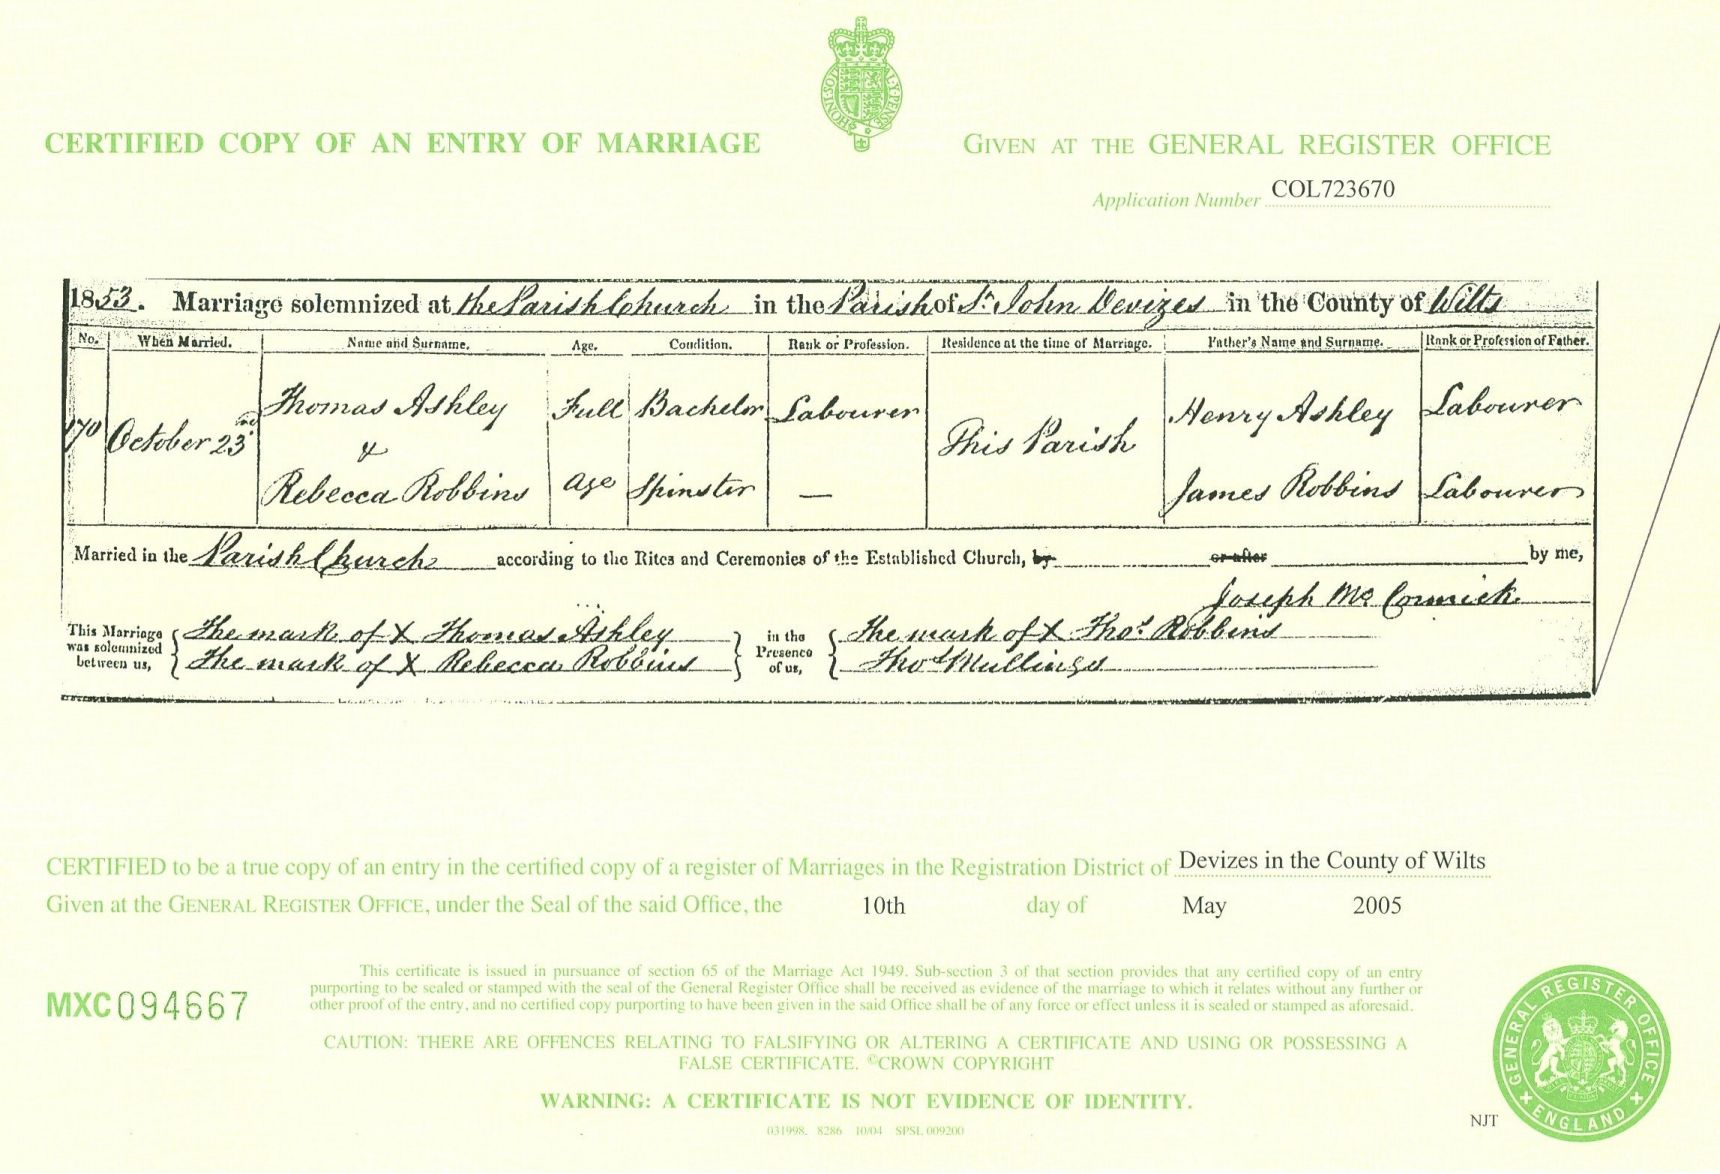 HONI·SOIT
L·Y·PENSE
CERTIFIED COPY OF AN ENTRY OF MARRIAGE
GIVEN AT THE GENERAL REGISTER OFFICE
Application Number COL723670
1853. Marriage solemnized at the Parish Church in the Parish of St. John Devizes in the County of Wilts
No. When Married. Name and Surname. Age. Condition. Rank or Profession. Residence at the time of Marriage. Father's Name and Surname. Rank or Profession of Father.
Thomas Ashley Full Bachelor Labourer Henry Ashley Labourer
170 October 23rd & This Parish
Rebecca Robbins Age Spinster — James Robbins Labourer
Married in the Parish Church according to the Rites and Ceremonies of the Established Church, by or after by me,
Joseph Mc Cormick
This Marriage was solemnized between us,
The mark of X Thomas Ashley
The mark of X Rebecca Robbins
in the Presence of us,
The mark of X Thos. Robbins
Thos Mullings
CERTIFIED to be a true copy of an entry in the certified copy of a register of Marriages in the Registration District of Devizes in the County of Wilts
Given at the GENERAL REGISTER OFFICE, under the Seal of the said Office, the 10th day of May 2005
This certificate is issued in pursuance of section 65 of the Marriage Act 1949. Sub-section 3 of that section provides that any certified copy of an entry
purporting to be sealed or stamped with the seal of the General Register Office shall be received as evidence of the marriage to which it relates without any further or
other proof of the entry, and no certified copy purporting to have been given in the said Office shall be of any force or effect unless it is sealed or stamped as aforesaid.
MXC 094667
CAUTION: THERE ARE OFFENCES RELATING TO FALSIFYING OR ALTERING A CERTIFICATE AND USING OR POSSESSING A
FALSE CERTIFICATE. ©CROWN COPYRIGHT
WARNING: A CERTIFICATE IS NOT EVIDENCE OF IDENTITY.
031998. 8286 10/04 SPSL 009200
NJT
GENERAL REGISTER OFFICE
ENGLAND